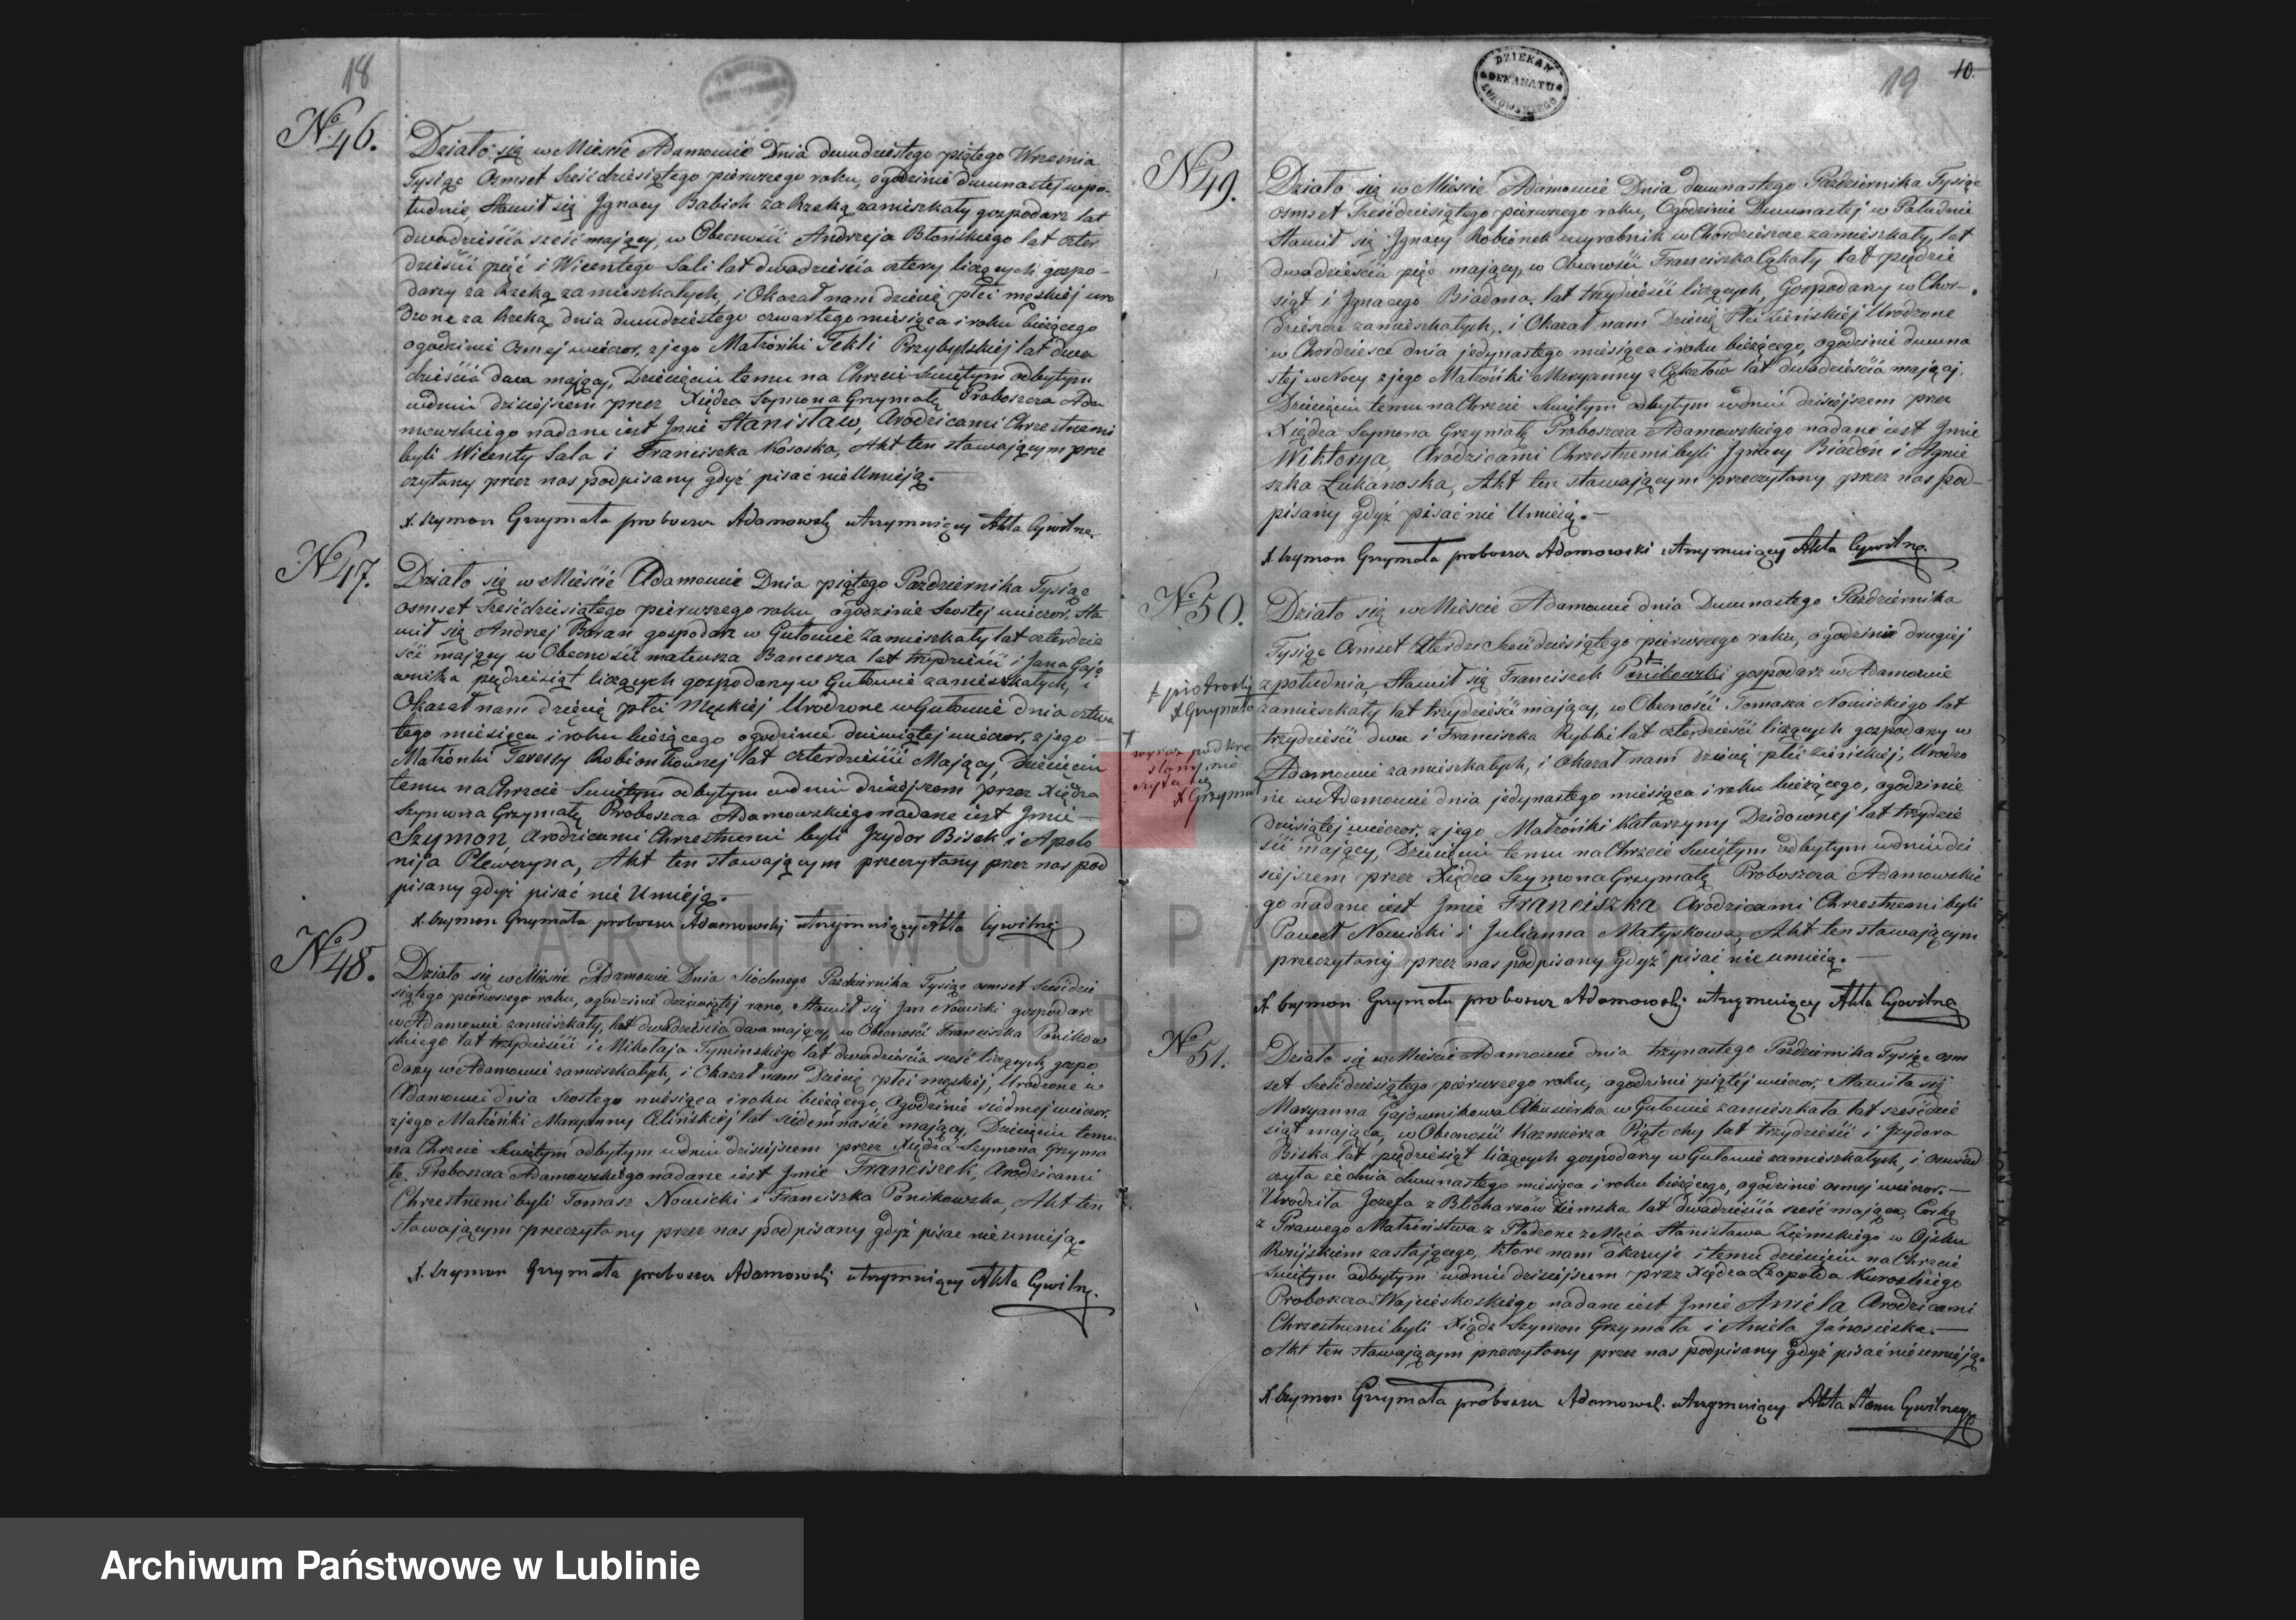 18
No 46.
Działo się w Mieście Adamowie Dnia dwudziestego piątego Września
Tysiąc Osmset Sześćdziesiątego pierwszego roku, o godzinie dwunastej w po-
łudnie, Stawił się Ignacy Babich za Rzeką zamieszkały gospodarz lat
dwadzieścia sześć mający, w Obecności Andrzeja Błońskiego lat czter
dzieści pięć i Wicentego Sali lat dwadzieścia cztery liczących gospo-
darzy za Rzeką zamieszkałych, i Okazał nam dziecię płci męskiej uro
dzone za Rzeką dnia dwudziestego czwartego miesiąca i roku bieżącego
o godzinie osmej wieczor, z jego Małżonki Tekli Przybylskiej lat dwa
dzieścia dwa mający, Dziecięciu temu na Chrzcie Swiętym odbytym
w dniu dzisiejszem przez Xiędza Szymona Grzymałę Proboszcza Ada
mowskiego nadane iest Imie Stanisław, a rodzicami Chrzestnemi
byli Wicenty Sala i Franciszka Kososka, Akt ten stawającym prze
czytany przez nas podpisany gdyż pisać nie Umieją.
X. Szymon Grzymała proboszcz Adamowski utrzymuiący Akta Cywilne.
No 47.
Działo się w Mieście Adamowie Dnia piątego Października Tysiąc
osmset Sześćdziesiątego pierwszego roku, o godzinie Szostej wieczor, Sta
wił się Andrzej Baran gospodarz w Gułowie Zamieszkały lat czterdzie
ści mający w Obecności Mateusza Bancerza lat trzydzieści i Jana Gajo
wnika pięćdziesiąt liczących gospodarzy w Gułowie zamieszkałych, i
Okazał nam dziecię płci Męskiej Urodzone w Gułowie dnia czwar
tego miesiąca i roku bieżącego o godzinie dziewiątej wieczor, z jego
Małżonki Teressy Robionkownej lat czterdzieści Mający, Dziecięciu
temu na Chrzcie Swiętym odbytym w dniu dzisiejszem przez Xiędza
Szymona Grzymałę Proboszcza Adamowskiego nadane iest Imie
Szymon, a rodzicami Chrzestnemi byli Izydor Bisek i Apolo
nija Plewczyna, Akt ten stawającym przeczytany przez nas pod
pisany gdyż pisać nie Umieją.
X. Szymon Grzymała proboszcz Adamowski utrzymuiący Akta Cywilne
No 48.
Działo się w Mieście Adamowie Dnia Siodmego Października Tysiąc osmset Sześćdzie
siątego pierwszego roku, o godzinie dziewiątej rano, Stawił się Jan Nowicki gospodarz
w Adamowie zamieszkały, lat dwadzieścia dwa mający, w Obecności Franciszka Ponikow
skiego lat trzydzieści i Mikołaja Tyminskiego lat dwadzieścia sześć liczących gospo
darzy w Adamowie zamieszkałych, i Okazał nam Dziecię płci męzkiej, Urodzone w
Adamowie dnia Szostego miesiąca i roku bieżącego, o godzinie siódmej wieczor,
z jego Małżonki Maryanny Celińskiej lat siedemnaście mający, Dziecięciu temu
na Chrzcie Swiętym odbytym w dniu dzisiejszem przez Xiędza Szymona Grzyma
łę Proboszcza Adamowskiego nadane iest Imie Franciszek, a rodzicami
Chrzestnemi byli Tomasz Nowicki i Franciszka Ponikowska, Akt ten
stawającym przeczytany przez nas podpisany gdyż pisac nie umieją.
X. Szymon Grzymała proboszcz Adamowski utrzymuiący Akta Cywilne.
DZIEKAN DEKANATU ŁUKOWSKIEGO
19
10.
No 49.
Działo się w Mieście Adamowie Dnia dwunastego Października Tysiąc
osmset Sześćdziesiątego pierwszego roku, O godzinie Dwunastej w Południe
Stawił się Ignacy Robionek wyrobnik w Chordzieszce zamieszkały, lat
dwadzieścia pięć mający, w Obecności Franciszka Cękały lat pięćdzie
siąt i Ignacego Biadona lat trzydzieści liczących, Gospodarzy w Chor-
dzieszce zamieszkałych, i Okazał nam Dziecię Płci Żeńskiej Urodzone
w Chordziesce dnia jedynastego miesiąca i roku bieżącego, o godzinie dwuna
stej w Nocy z jego Małżonki Maryanny z Cękałow lat dwadzieścia mającej.
Dziecięciu temu na Chrzcie Swiętym odbytym w dniu dzisiejszem przez
Xiędza Szymona Grzymałę Proboszcza Adamowskiego nadane iest Imie
Wiktorya, a rodzicami Chrzestnemi byli Ignacy Biadoń i Agnie
szka Łukanoska, Akt ten stawającym przeczytany przez nas pod-
pisany gdyż pisać nie Umieią.
X. Szymon Grzymała proboszcz Adamowski utrzymuiący Akta Cywilne.
No 50.
Działo się w Mieście Adamowie dnia Dwunastego Października
Tysiąc Osmset Czterdzie Sześćdziesiątego pierwszego roku, o godzinie drugiej
z południa, Stawił się Franciszek Ponikowski gospodarz w Adamowie
zamieszkały lat trzydzieści mający, w Obecności Tomasza Nowickiego lat
trzydzieści dwa i Franciszka Rybki lat czterdzieści liczących gospodarzy w
Adamowie zamieszkałych, i Okazał nam dziecię płci żeńskiej, Urodzo
ne w Adamowie dnia jedynastego miesiąca i roku bieżącego, o godzinie
dziesiątej wieczor, z jego Małżonki Katarzyny Dzidownej lat trzydzie
ści mający, Dziecięciu temu na Chrzcie Swiętym odbytym w dniu dzi
siejszem przez Xiędza Szymona Grzymałę Proboszcza Adamowskie
go nadane iest Imie Franciszka a rodzicami Chrzestnemi byli
Paweł Nowicki i Julianna Matyskowa, Akt ten stawającym
przeczytany przez nas podpisany gdyż pisać nie umieią.
X. Szymon Grzymała proboszcz Adamowski utrzymuiący Akta Cywilne
piotroski
X Grzymała
wyraz podkre
slony nie
czyta się
X Grzymał
No 51.
Działo się w Mieście Adamowie dnia trzynastego Października Tysiąc osm
set Sześćdziesiątego pierwszego roku, o godzinie piątej wieczor, Stawiła się
Maryanna Gajownikowa Akuszerka w Gułowie zamieszkała lat sześćdzie
siąt mająca, w Obecności Kazmierza Piętochy lat trzydzieści i Izydora
Biska lat pięćdziesiąt liczących gospodarzy w Gułowie zamieszkałych, i oswiad
czyła że dnia dwunastego miesiąca i roku bieżącego, o godzinie osmej wieczor.
Urodziła Jozefa z Blicharzow Ziemska lat dwadzieścia sześć mająca, Corkę
z Prawego Małżeństwa z Płodzone z Męża Stanisława Ziemskiego w Ojsku
Rosijskiem zostającego, ktore nam okazuje i temu dziecięciu na Chrzcie
Swiętym odbytym w dniu dzisiejszem przz Xiędza Leopolda Kuroskiego
Proboszcza Wojcieskoskiego nadane iest Imie Aniela a rodzicami
Chrzestnemi byli Xiądz Szymon Grzymała i Aniela Janosieska.
Akt ten stawającym przeczytany przez nas podpisany gdyż pisać nie umieją.
X. Szymon Grzymała proboszcz Adamowsk. utrzymuiący Akta Stanu Cywilnego
ARCHIWUM PAŃSTWOWE
W LUBLINIE
Archiwum Państwowe w Lublinie